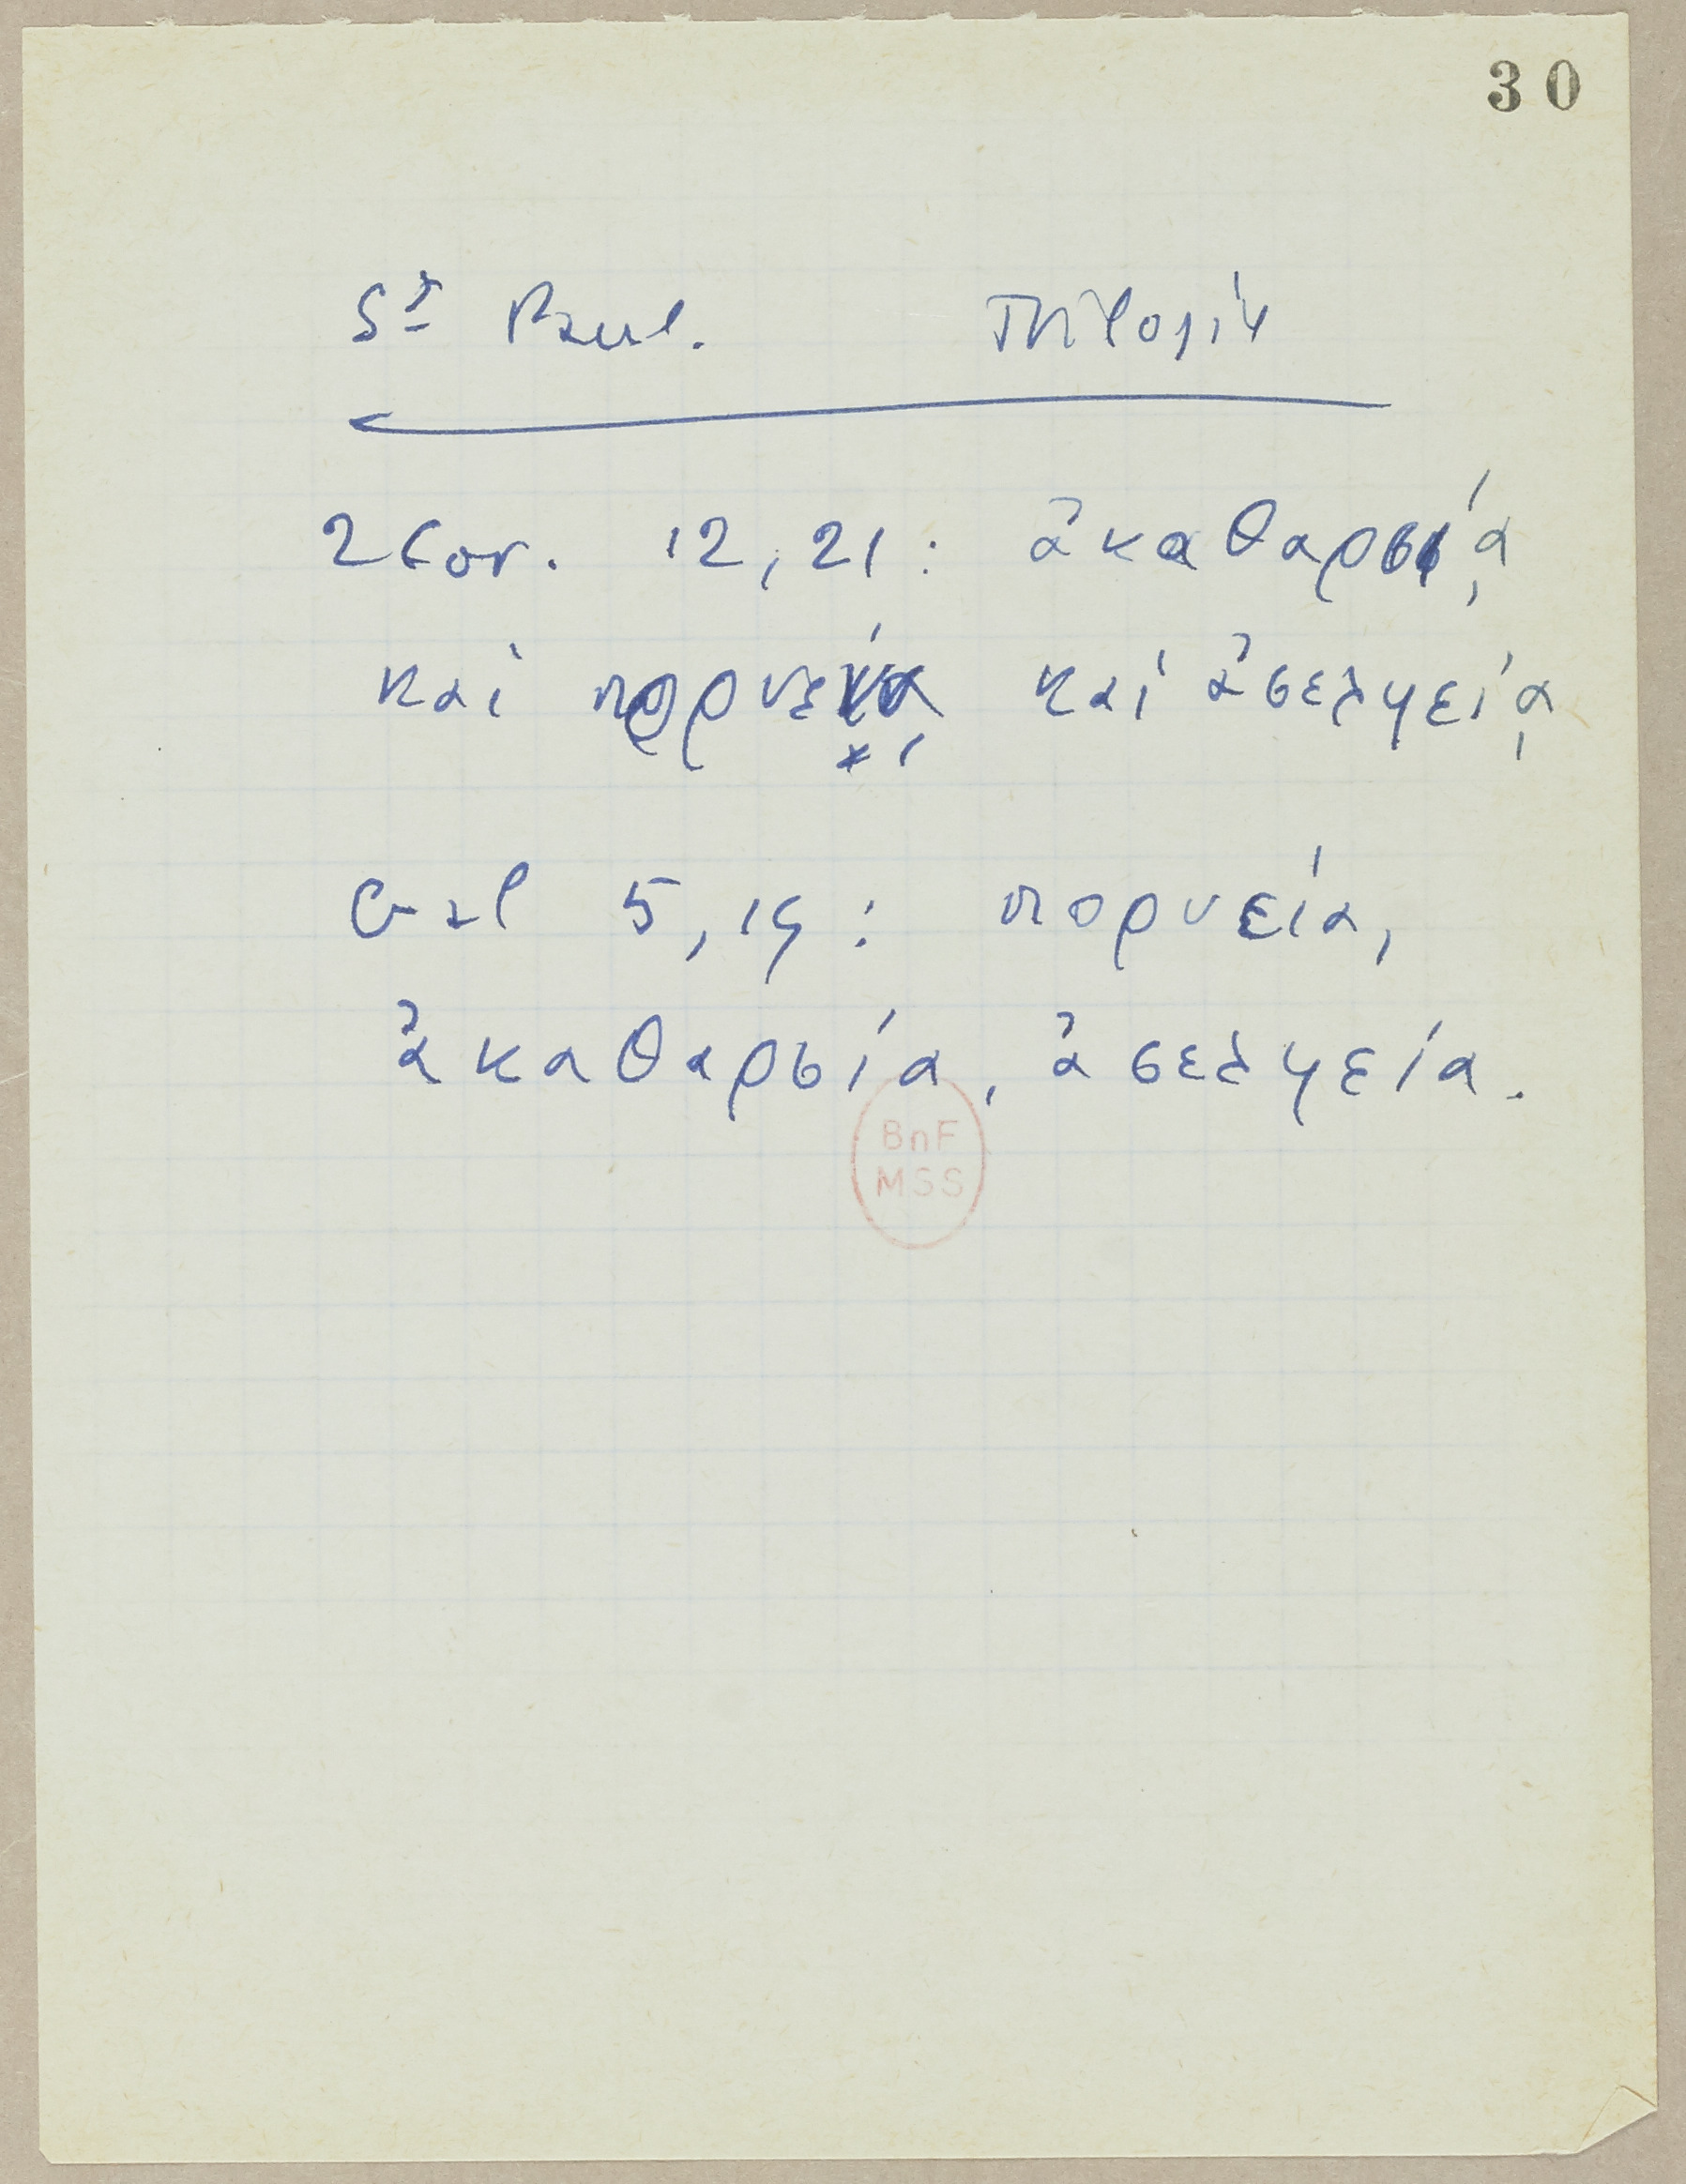 30
St Paul. Trilogie
2 Cor. 12, 21 : ἀκαθαρσίᾳ
καὶ πορνείᾳ καὶ ἀσελγείᾳ
Gal 5, 19 : πορνεία,
ἀκαθαρσία, ἀσελγεία.
BnF
MSS